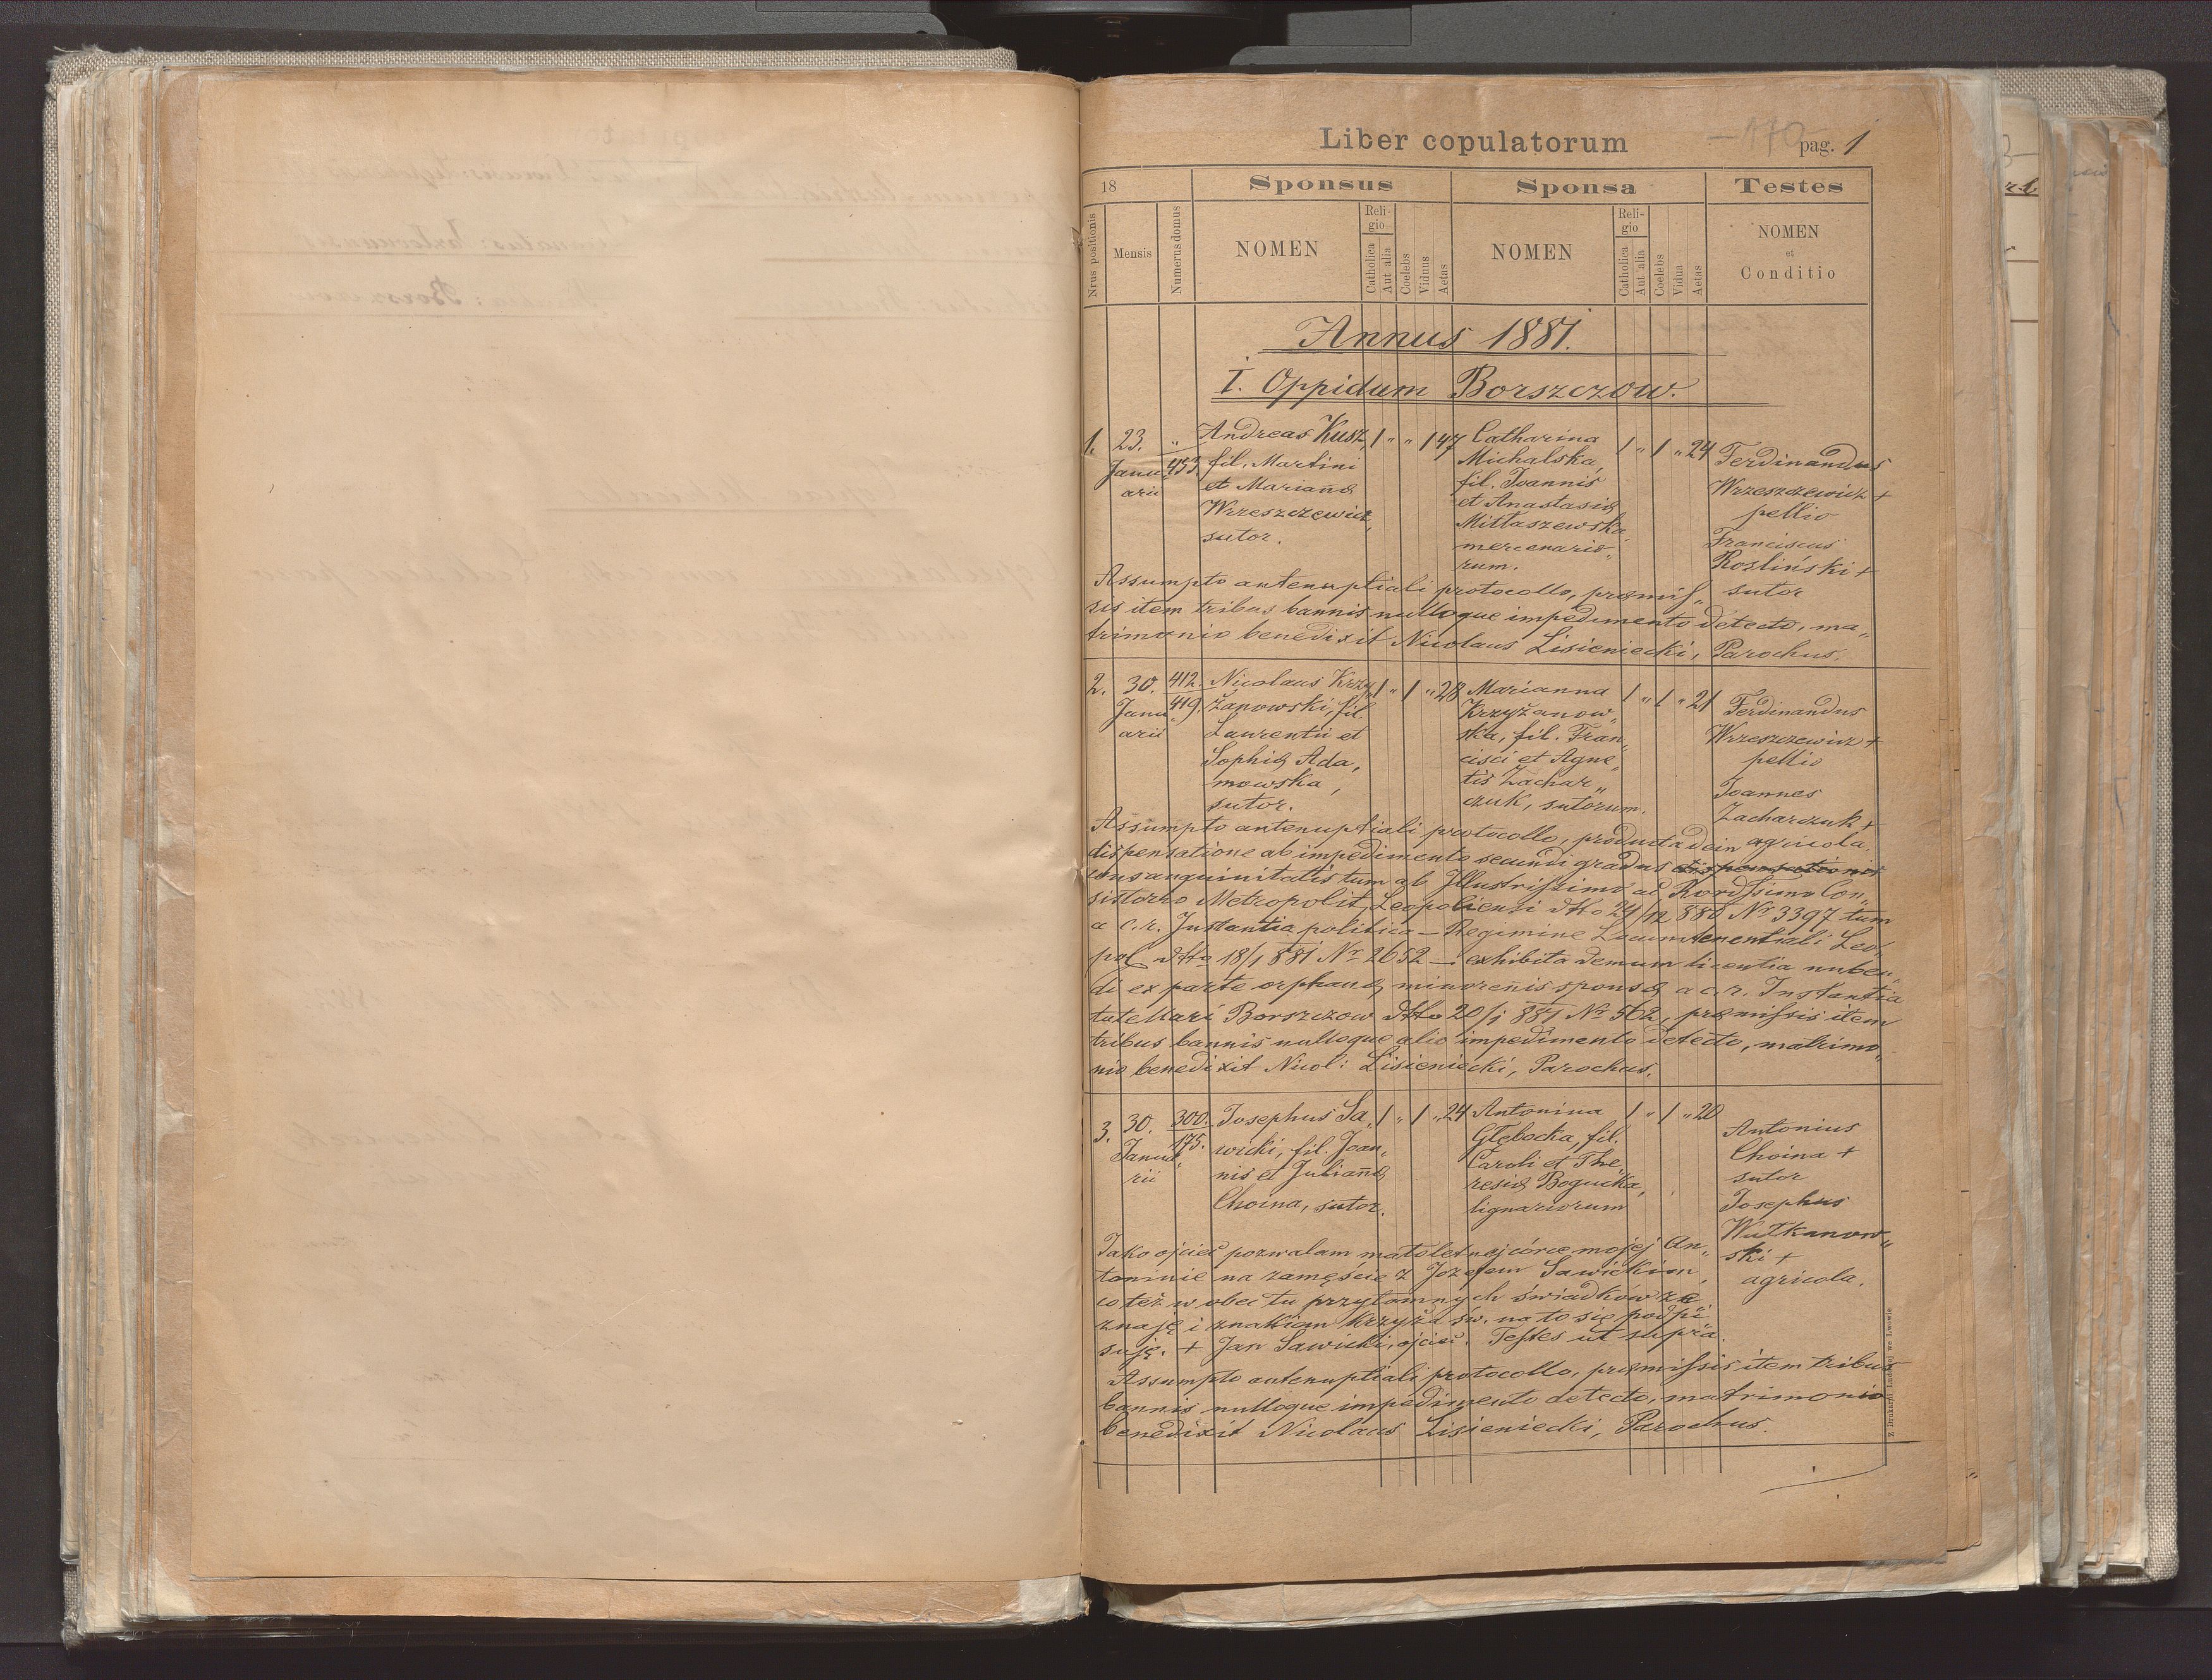 Liber copulatorum
-170-
pag. 1
18
Sponsus
Sponsa
Testes
Nrus positionis
Mensis
Numerus domus
NOMEN
Religio
Catholica
Aut alia
Coelebs
Viduus
Aetas
NOMEN
Religio
Catholica
Aut alia
Coelebs
Vidua
Aetas
NOMEN
et
Conditio
Annus 1881.
I. Oppidum Borszczow.
1. 23. Janu„ arii
„ 453.
Andreas Kusz,
fil. Martini
et Mariannæ
Wrzeszczewicz,
sutor.
1 „ „ 1 47
Catharina
Michalska,
fil. Joannis
et Anastasiæ
Mittaszewska
mercenario„
rum.
1 „ 1 „ 24
Ferdinandus
Wrzeszczewicz +
pellio
Franciscus
Rosliński +
sutor
Assumpto antenuptiali protocollo, præmis„
sis item tribus bannis nulloque impedimento detecto, ma„
trimonio benedixit Nicolaus Lisieniecki, Parochus.
2. 30. Janu„ arii
412. 419.
Nicolaus Krzy„
żanowski, fil.
Laurentii et
Sophiæ Ada„
mowska,
sutor.
1 „ 1 „ 28
Marianna
Krzyżanow„
ska, fil. Fran„
cisci et Agne„
tis Zachar„
czuk, sutorum.
1 „ 1 „ 21
Ferdinandus
Wrzeszczewicz +
pellio
Joannes
Zacharczuk +
agricola.
Assumpto antenuptiali protocollo, producta dein
dispensatione ab impedimento secundi gradus dispensationis
consanguinitatis tum ab Illustrissimo ac Rvrdssimo Con„
sistorio Metropolit. Leopoliensi dtto 24/12 880 Nr 3397 tum
a c.r. Instantia politica - Regimine Locumtenentiali Leo„
pol dtto 18/1 881 Nr 2652 - exhibita demum licentia nuben„
di ex parte orphanæ minorenis sponsæ a c.r. Instantia
tutellari Borszczow dtto 20/1 881 Nr 562, præmissis item
tribus bannis nulloque alio impedimento detecto, matrimo„
nio benedixit Nicol: Lisieniecki, Parochus.
3. 30. Janua„ rii
300. 175.
Josephus Sa„
wicki, fil. Joan„
nis et Juliannæ
Choina, sutor.
1 „ 1 „ 24
Antonina
Głębocka, fil.
Caroli et The„
resiæ Bogucka,
lignariorum
1 „ 1 „ 20
Antonius
Choina +
sutor
Josephus
Wutkanow„
ski +
agricola.
Jako ojciec pozwalam małoletnej córce mojej An„
toninie na zamęście z Jozefem Sawickim,
co też w obec tu przytomnych świadkow ze
znaję i znakiem krzyża św. na to się podpi
suję. + Jan Sawicki, ojciec. Testes ut supra.
Assumpto antenuptiali protocollo, præmissis item tribus
bannis nulloque impedimento detecto, matrimonio
benedixit Nicolaus Lisieniecki, Parochus.